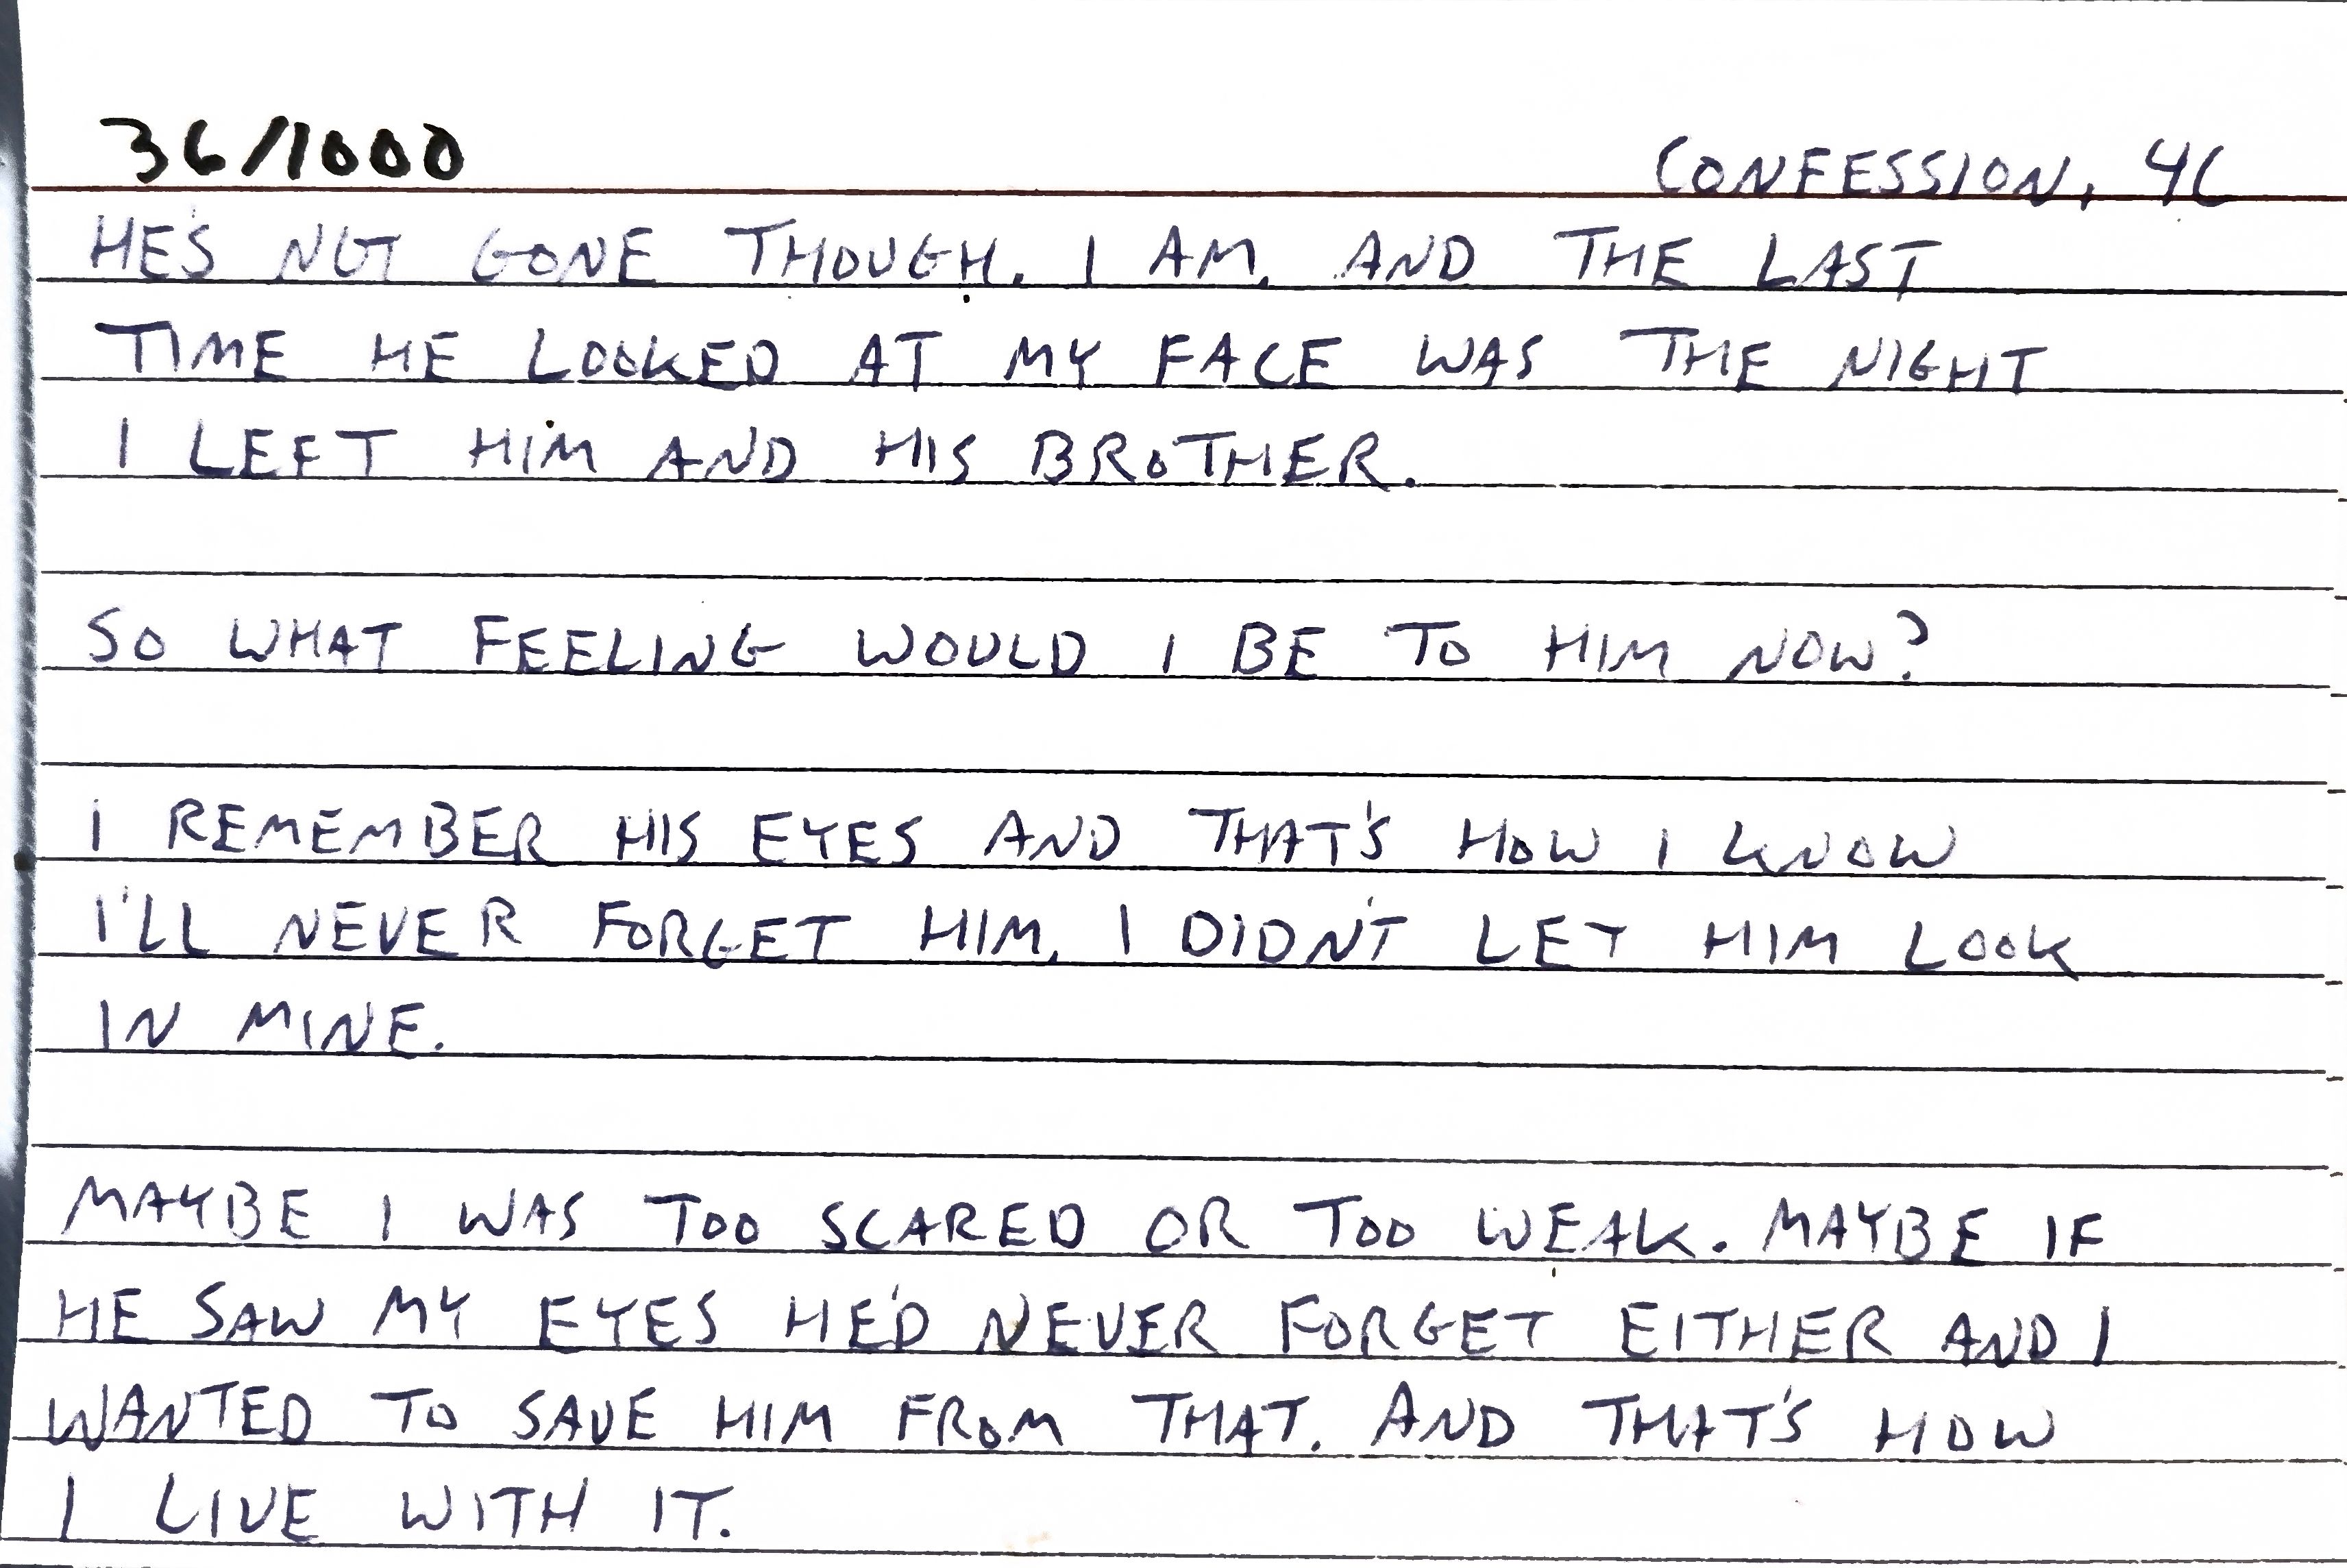 36/1000
CONFESSION, 4C
HE'S NOT GONE THOUGH. I AM. AND THE LAST
TIME HE LOOKED AT MY FACE WAS THE NIGHT
I LEFT HIM AND HIS BROTHER.
SO WHAT FEELING WOULD I BE TO HIM NOW?
I REMEMBER HIS EYES AND THAT'S HOW I KNOW
I'LL NEVER FORGET HIM. I DIDN'T LET HIM LOOK
IN MINE.
MAYBE I WAS TOO SCARED OR TOO WEAK. MAYBE IF
HE SAW MY EYES HE'D NEVER FORGET EITHER AND I
WANTED TO SAVE HIM FROM THAT. AND THAT'S HOW
I LIVE WITH IT.